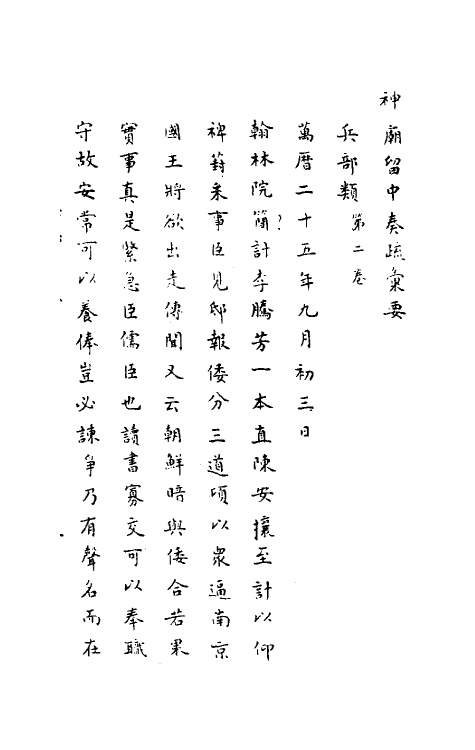 神廟留中奏疏彙要
兵部類 第二卷
萬曆二十五年九月初三日
翰林院簡討李騰芳一本直陳安攘至計以仰
裨籌東事臣見邸報倭分三道頃以眾逼南京
國王將欲出走傳聞又云朝鮮暗與倭合若果
實事真是緊急臣儒臣也讀書寡交可以奉職
守故安常可以養俸豈必諫爭乃有聲名而在